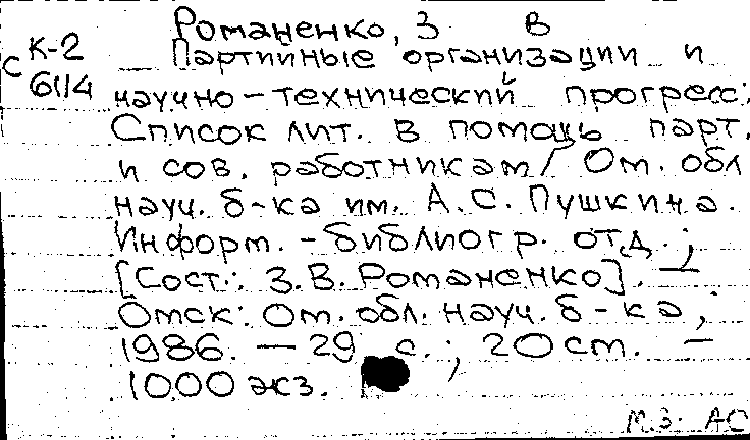 Романенко, З. В
К-2
с
6114
Партийные организации и
научно-технический прогресс:
Список лит. в помощь парт.
и сов. работникам / Ом. обл
науч. б-ка им. А.С. Пушкина.
Информ.-библиогр. отд.;
[Сост.: З.В. Романенко]. —
Омск: Ом. обл. науч. б-ка,
1986. — 29 с.; 20 см. —
1000 экз.
М.З. АО